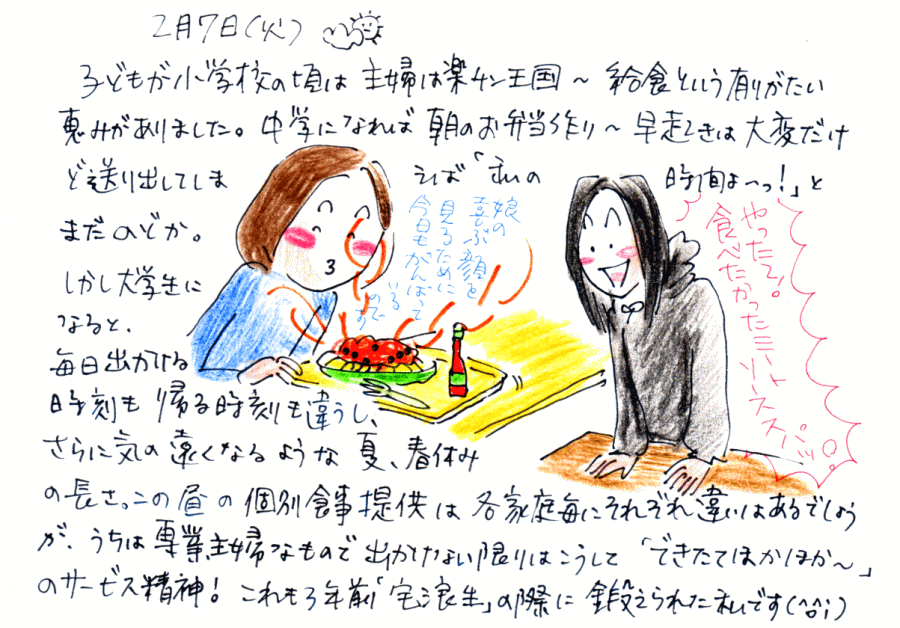 2月7日(火)
子どもが小学校の頃は 主婦は楽チン王国〜 給食という有りがたい
恵みがありました。中学になれば 朝のお弁当作り〜 早起きは 大変だけ
ど送り出してしま えば「私の 時間よ〜っ!」と
まだのどか。
しかし大学生に
なると、
毎日出かける
時刻も 帰る時刻も違うし、
さらに気の遠くなるような 夏、春休み
の長さ。この昼の個別食事提供は 各家庭毎にそれぞれ違いはあるでしょう
が、うちは専業主婦なもので 出かけない限りはこうして「できたてほかほか〜」
のサービス精神! これも3年前「宅浪生」の際に 鍛えられた私です(^o^;)
娘の
喜ぶ顔を
見るために
今日もがんばって
いるので
す
やったで!
食べたかったミート
ソーススパ
ッ。